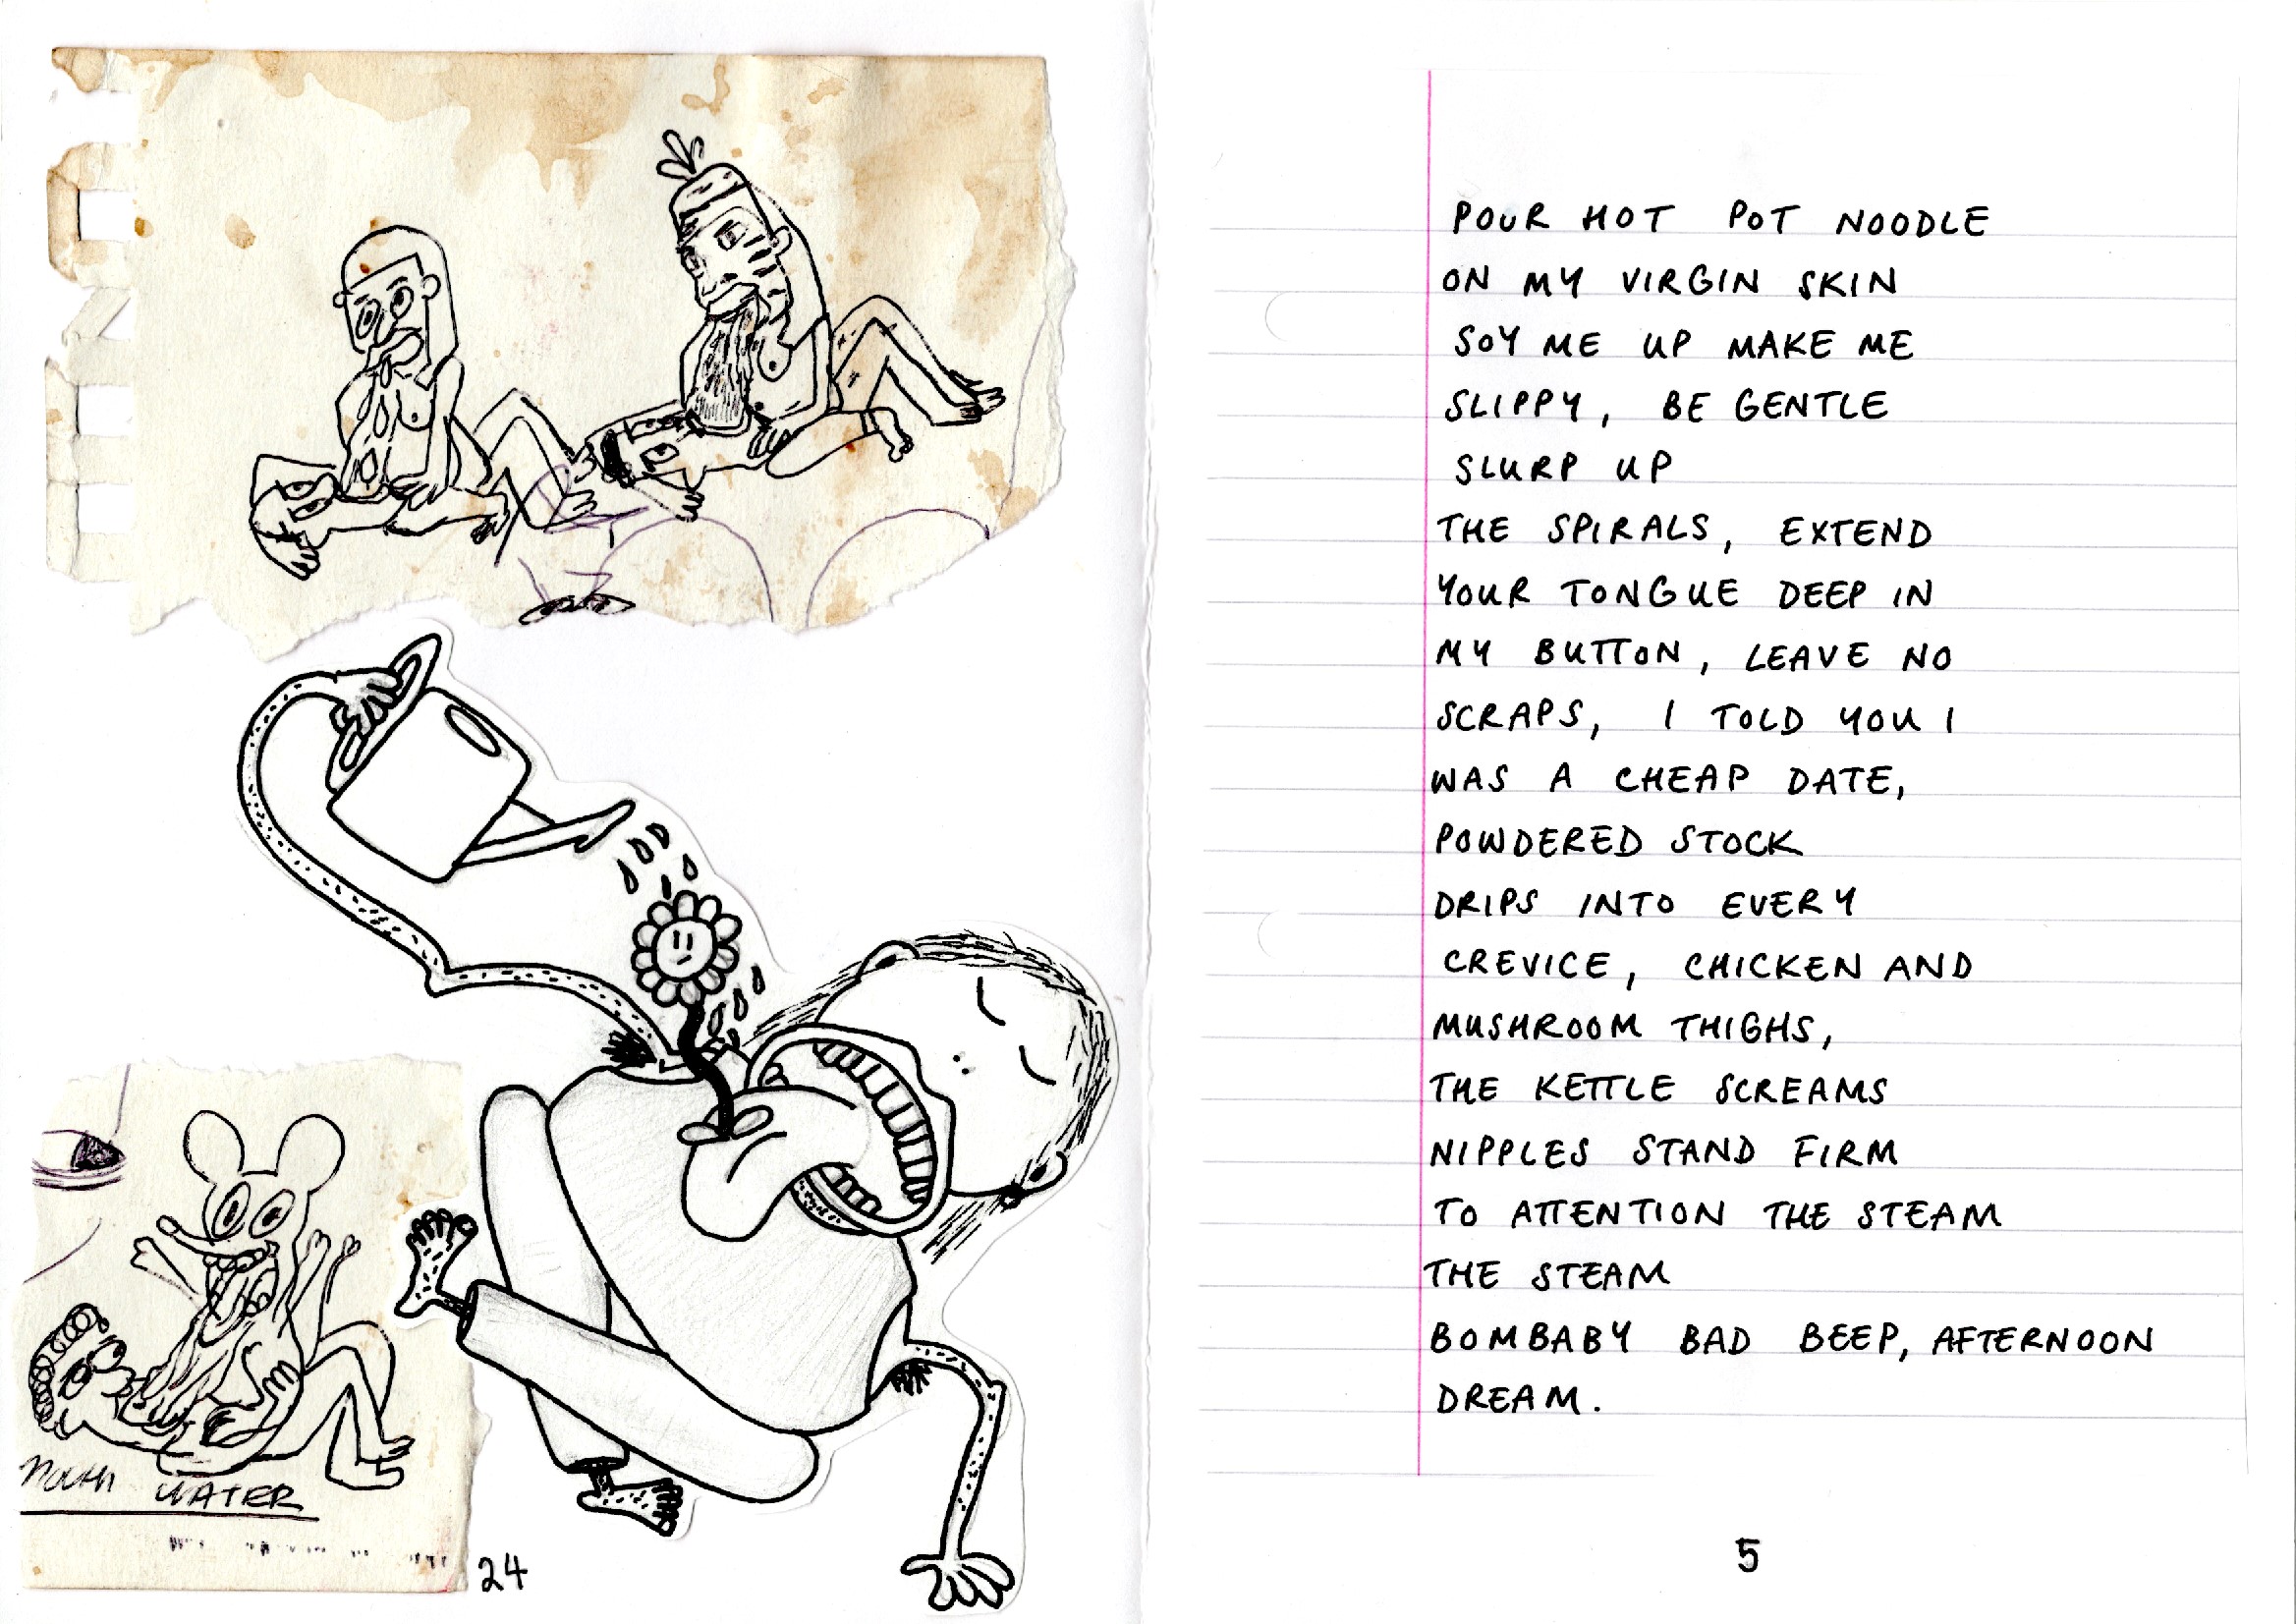 MOUTH WATER
24
POUR HOT POT NOODLE
ON MY VIRGIN SKIN
SOY ME UP MAKE ME
SLIPPY, BE GENTLE
SLURP UP
THE SPIRALS, EXTEND
YOUR TONGUE DEEP IN
MY BUTTON, LEAVE NO
SCRAPS, I TOLD YOU I
WAS A CHEAP DATE,
POWDERED STOCK
DRIPS INTO EVERY
CREVICE, CHICKEN AND
MUSHROOM THIGHS,
THE KETTLE SCREAMS
NIPPLES STAND FIRM
TO ATTENTION THE STEAM
THE STEAM
BOMBABY BAD BEEP, AFTERNOON
DREAM.
5